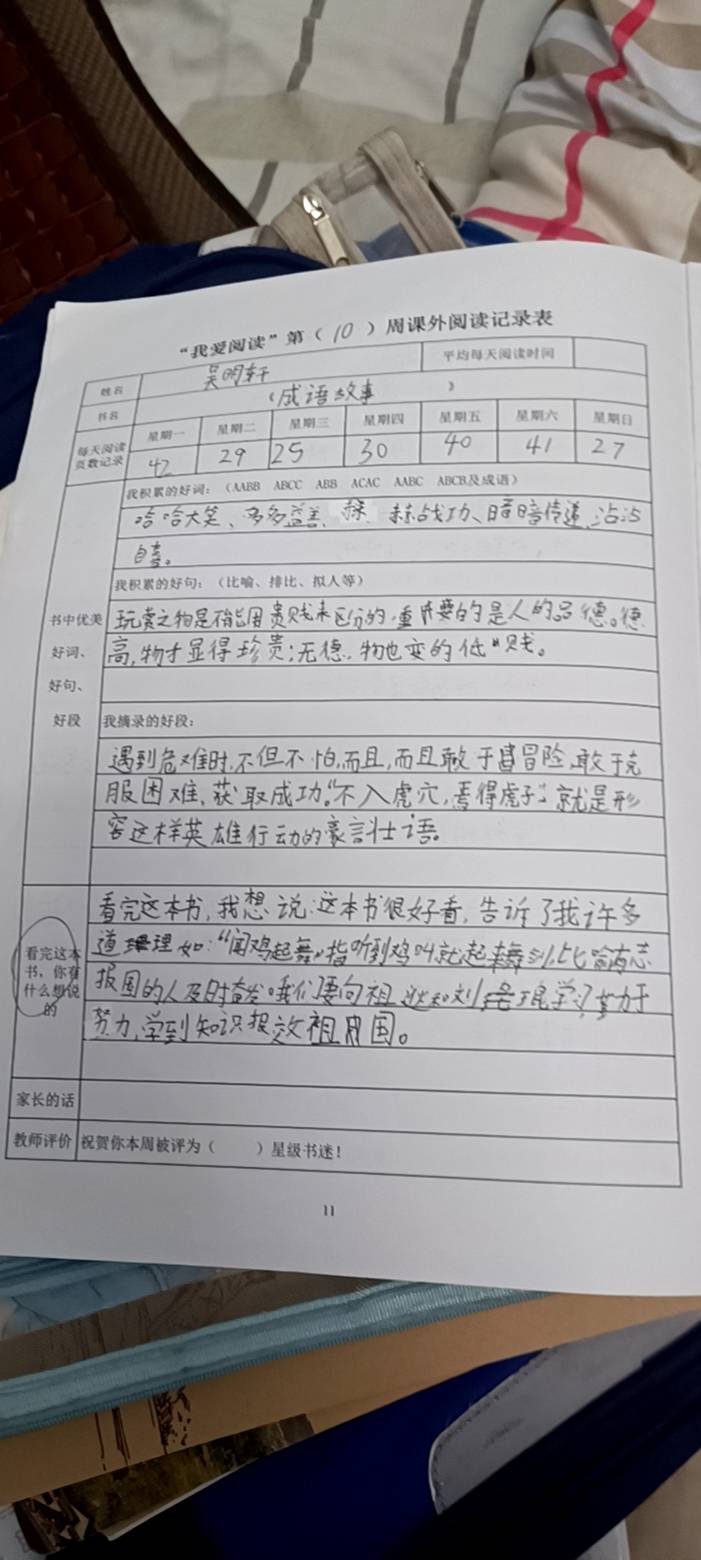 “我爱阅读”第（10）周课外阅读记录表
姓名 吴明轩 平均每天阅读时间
书名 《成语故事》
每天阅读页数记录 星期一 星期二 星期三 星期四 星期五 星期六 星期日
42 29 25 30 40 41 27
书中优美好词、好句、好段
我积累的好词：（AABB ABCC ABB ACAC AABC ABCB及成语）
哈哈大笑、多多益善、赫赫战功、暗暗传递、沾沾
自喜。
我积累的好句：（比喻、排比、拟人等）
玩赏之物是不能用贵贱来区分的，重要的是人的品德。德
高，物才显得珍贵；无德，物也变的低贱。
我摘录的好段：
遇到危难时，不但不怕，而且，而且敢于冒险，敢于克
服困难、获取成功。“不入虎穴，焉得虎子”就是形
容这样英雄行动的豪言壮语。
看完这本书，你有什么想说的
看完这本书，我想说：这本书很好看，告诉了我许多
道理如：“闻鸡起舞”指听到鸡叫就起来舞剑，比喻有志
报国的人及时奋发。我们要向祖逖和刘琨学习，努力
努力，学到知识报效祖国。
家长的话
教师评价 祝贺你本周被评为（ ）星级书迷！
11